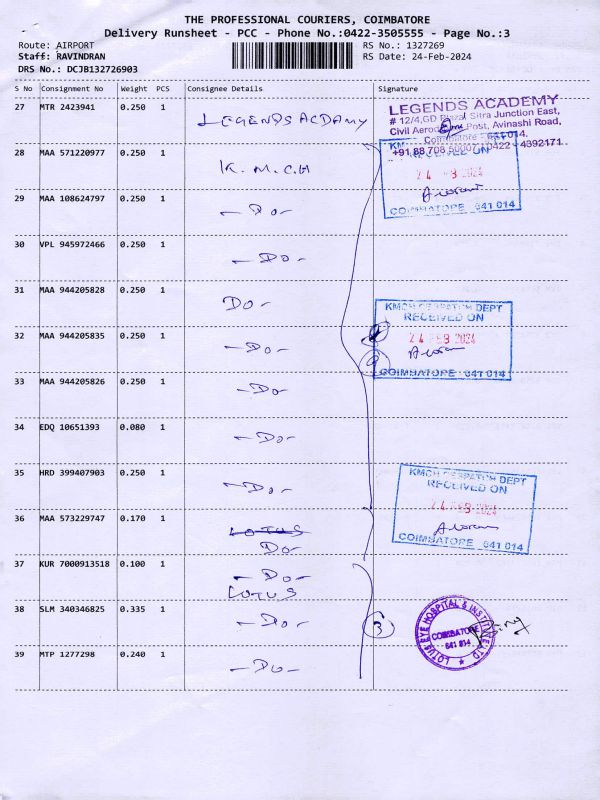 THE PROFESSIONAL COURIERS, COIMBATORE
Delivery Runsheet - PCC - Phone No.:0422-3505555 - Page No.:3
Route: AIRPORT
Staff: RAVINDRAN
DRS No.: DCJB132726903
RS No.: 1327269
RS Date: 24-Feb-2024
S No Consignment No Weight PCS Consignee Details Signature
27 MTR 2423941 0.250 1 LEGENDS ACDAMY
LEGENDS ACADEMY
# 12/4,GD Plaza, Sitra Junction East,
Civil Aerodrome Post, Avinashi Road,
Coimbatore - 641 014.
28 MAA 571220977 0.250 1 K.M.C.H
RECEIVED ON
24 FEB 2024
COIMBATORE - 641 014
29 MAA 108624797 0.250 1 - Do -
30 VPL 945972466 0.250 1 - Do -
31 MAA 944205828 0.250 1 Do -
KMCH DESPATCH DEPT
RECEIVED ON
24 FEB 2024
COIMBATORE - 641 014
32 MAA 944205835 0.250 1 - Do -
9
33 MAA 944205826 0.250 1 - Do -
34 EDQ 10651393 0.080 1 - Do -
35 HRD 399407903 0.250 1 - Do -
KMCH DESPATCH DEPT
RECEIVED ON
24 FEB 2024
COIMBATORE - 641 014
36 MAA 573229747 0.170 1 LOTUS
Do -
37 KUR 7000913518 0.100 1 - Do -
LOTUS
38 SLM 340346825 0.335 1 - Do -
3
LOTUS EYE HOSPITAL & INSTITUTE LTD
COIMBATORE
641 014
39 MTP 1277298 0.240 1 - Do -